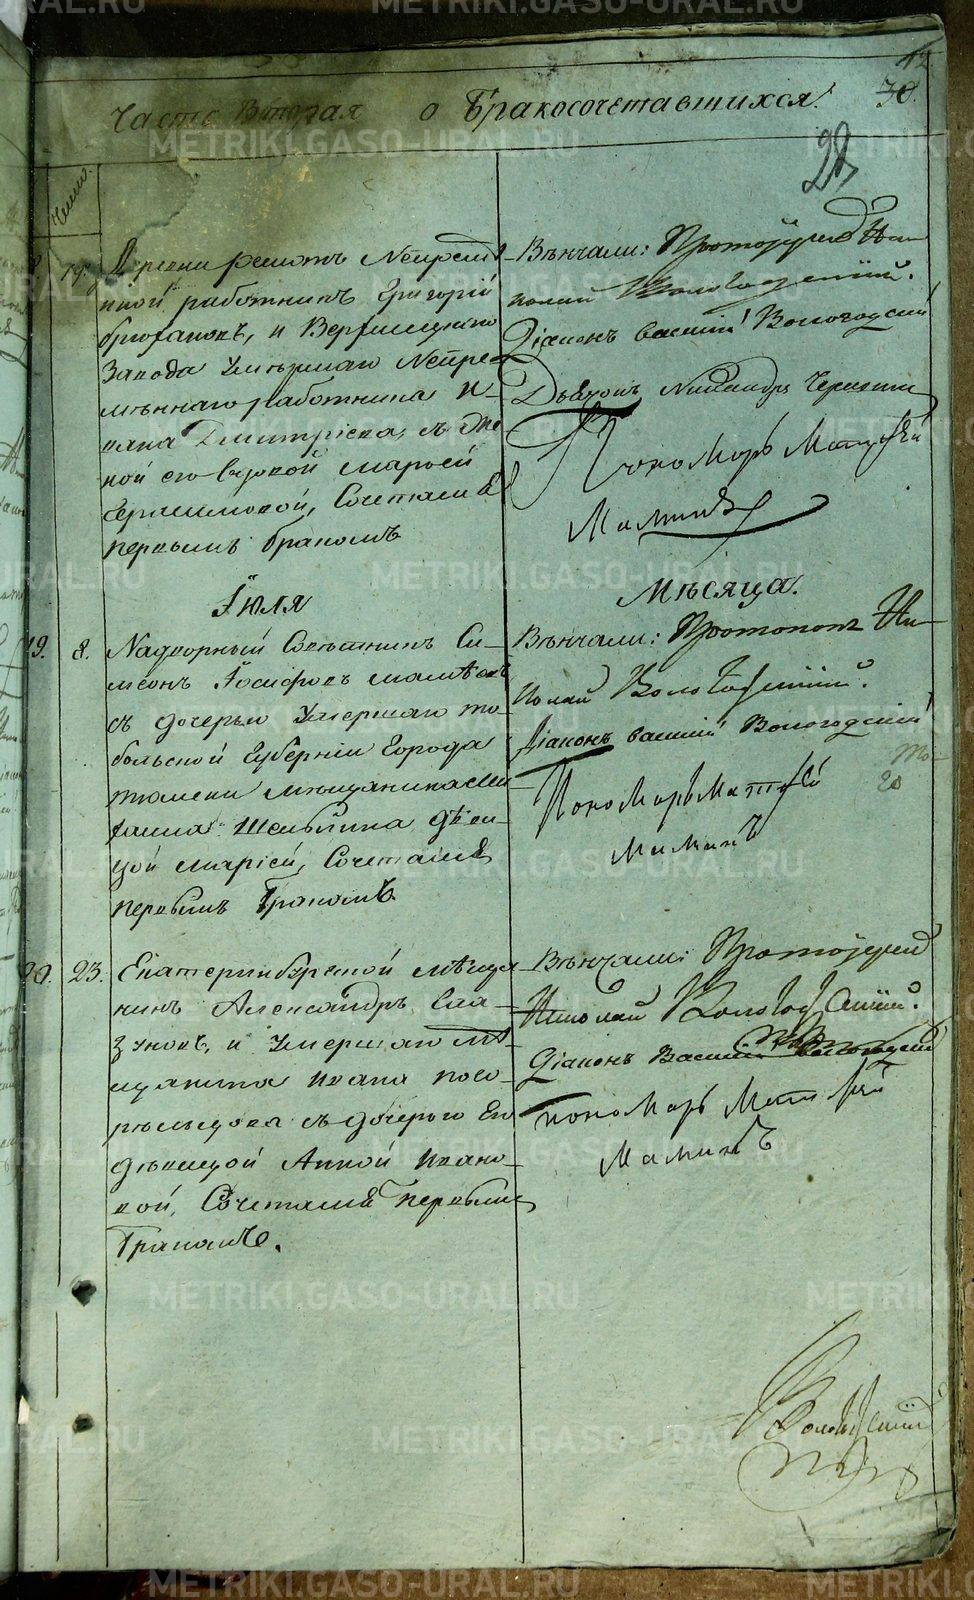 Часть Вторая о Бракосочетавшихся.
30.
28
Число.
19.
ной работникъ Григорій
и Верхъисецкаго
Завода Умершаго Непре-
мѣннаго работника И-
вана Дмитріева, съ Же-
ной его вдовой Марьей
Герасимовой, Сочетались
первымъ бракомъ
Вѣнчали: Протоіерей Ни-
колай Вологодскій.
Діаконъ Василій Вологодскій
Дьячокъ Никандръ
Пономарь Матѳей
Маминъ
Іюля Мѣсяца.
19. 8. Надворный Совѣтникъ Си-
меонъ Іосифовъ
съ дочерью Умершаго то-
больской Губерніи Города
тюмени мѣщанина
дѣви-
цой Маріей, Сочетались
первымъ Бракомъ
Вѣнчали: Протопопъ Ни-
колай Вологодскій.
Діаконъ Василій Вологодскій
Пономарь Матѳей
Маминъ
20. 23. Екатеринбургской мѣща-
нинъ Александръ
и Умершаго мѣ-
щанина Ивана
съ дочерью Его
дѣвицой Анной Ивано-
вой, Сочетались первымъ
Бракомъ.
Вѣнчали: Протоіерей
Николай Вологодскій.
Діаконъ Василій Вологодскій
пономарь Матѳей
Маминъ
METRIKI.GASO-URAL.RU